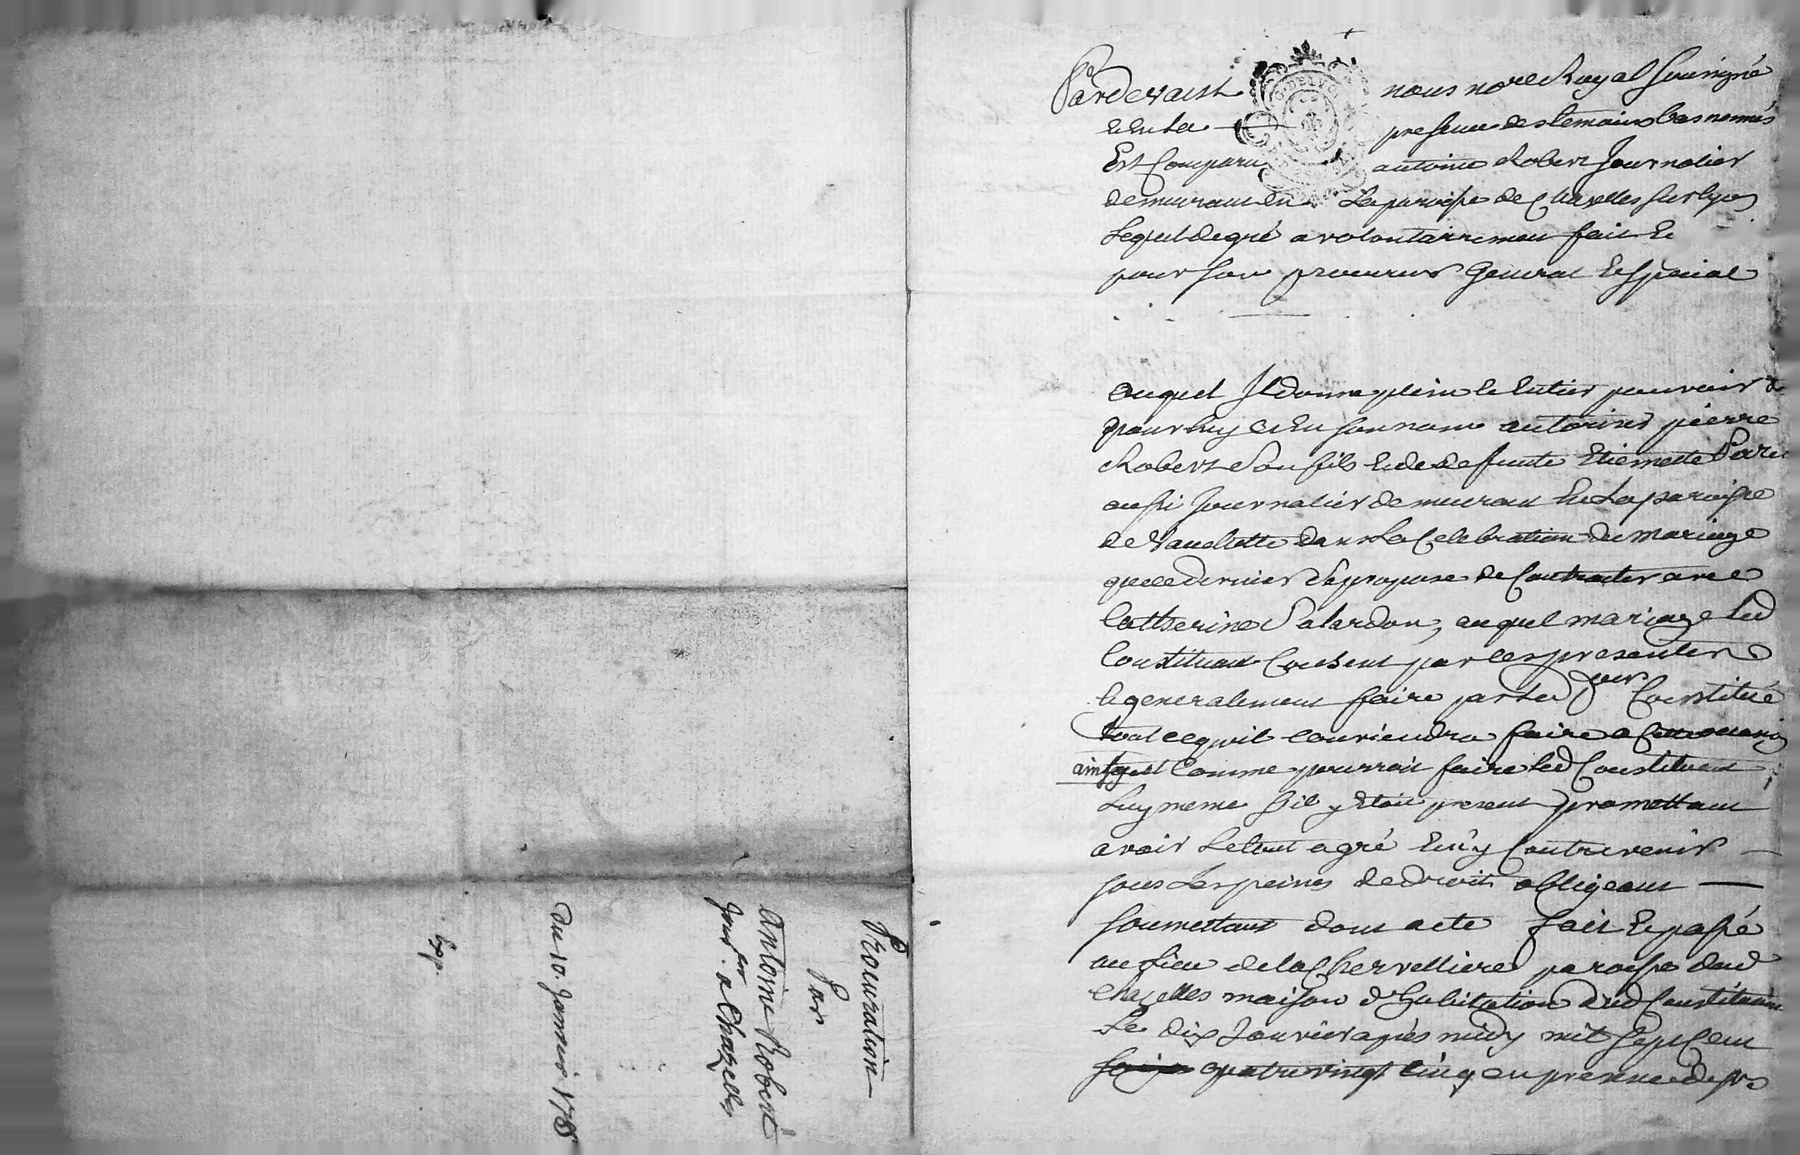 Pardevant nous nore Royal soussigné
et en la presence des temoins bas nommés
Est Comparu antoine Robert Journalier
demeurant en la paroisse de Chazelles sur lyon
Lequel de gré a volontairement fait et
pour son procureur General et special
auquel Il donne plein et Entier pouvoir de
pour luy et En son nom autoriser pierre
Robert Son fils et de defunte Etiennette
aussi Journalier demeurant En La paroisse
de dans La Celebration du mariage
que ce dernier se propose de Contracter avec
Catherine Palardon, auquel mariage led
Constituant Consent par ces presentes
et generalement faire par led pror Constitué
tout ce qu'il conviendra faire a
ainsy et Comme pourroit faire led Constituant
Luy meme s'il y Etoit present promettant
avoir Le tout agré Et n'y Contrevenir
sous Les peines de droit obligeant
soumettant dont acte fait et passé
au lieu de la paroisse dud
Chazelles maison d'habitation dud Constituant
Le dix Janvier apres midy mil sept Cent
quatre vingt cinq en presence de
Procuration
Par
Antoine Robert
Jour.er a Chazelles
Du 10. Janvier 1785
Exp.